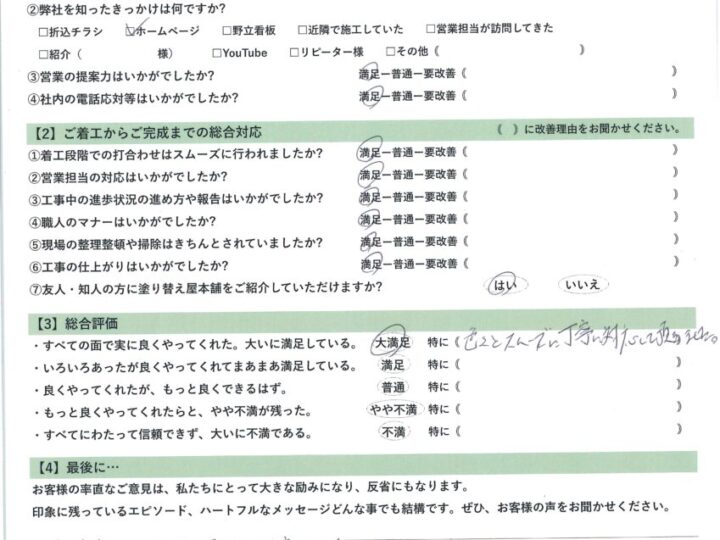 ②弊社を知ったきっかけは何ですか?
□折込チラシ ☑ホームページ □野立看板 □近隣で施工していた □営業担当が訪問してきた
□紹介（ 様） □YouTube □リピーター様 □その他《 》
③営業の提案力はいかがでしたか? 満足ー普通ー要改善《 》
④社内の電話応対等はいかがでしたか? 満足ー普通ー要改善《 》
【2】ご着工からご完成までの総合対応 《 》に改善理由をお聞かせください。
①着工段階での打合わせはスムーズに行われましたか? 満足ー普通ー要改善《 》
②営業担当の対応はいかがでしたか? 満足ー普通ー要改善《 》
③工事中の進歩状況の進め方や報告はいかがでしたか? 満足ー普通ー要改善《 》
④職人のマナーはいかがでしたか? 満足ー普通ー要改善《 》
⑤現場の整理整頓や掃除はきちんとされていましたか? 満足ー普通ー要改善《 》
⑥工事の仕上がりはいかがでしたか? 満足ー普通ー要改善《 》
⑦友人・知人の方に塗り替え屋本舗をご紹介していただけますか? はい いいえ
【3】総合評価
・すべての面で実に良くやってくれた。大いに満足している。 大満足 特に《 スムーズに丁寧に対応して
・いろいろあったが良くやってくれてまあまあ満足している。 満足 特に《 》
・良くやってくれたが、もっと良くできるはず。 普通 特に《 》
・もっと良くやってくれたらと、やや不満が残った。 やや不満 特に《 》
・すべてにわたって信頼できず、大いに不満である。 不満 特に《 》
【4】最後に…
お客様の率直なご意見は、私たちにとって大きな励みになり、反省にもなります。
印象に残っているエピソード、ハートフルなメッセージどんな事でも結構です。ぜひ、お客様の声をお聞かせください。